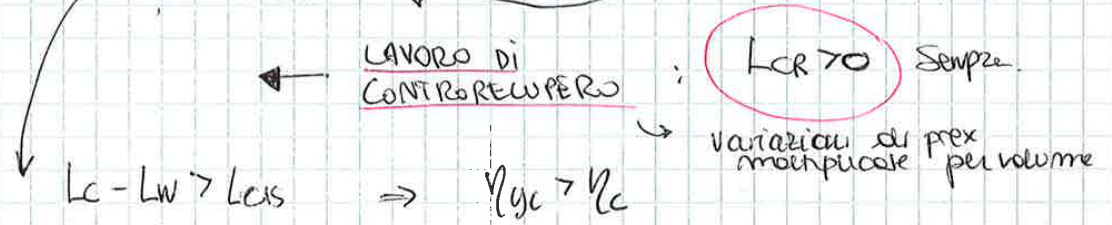 LAVORO DI
CONTRORECUPERO : LCR > 0 Sempre.
variazioni di prex
moltiplicate per volume
Lc - Lw > Lcis ⇒ ηyc > ηc